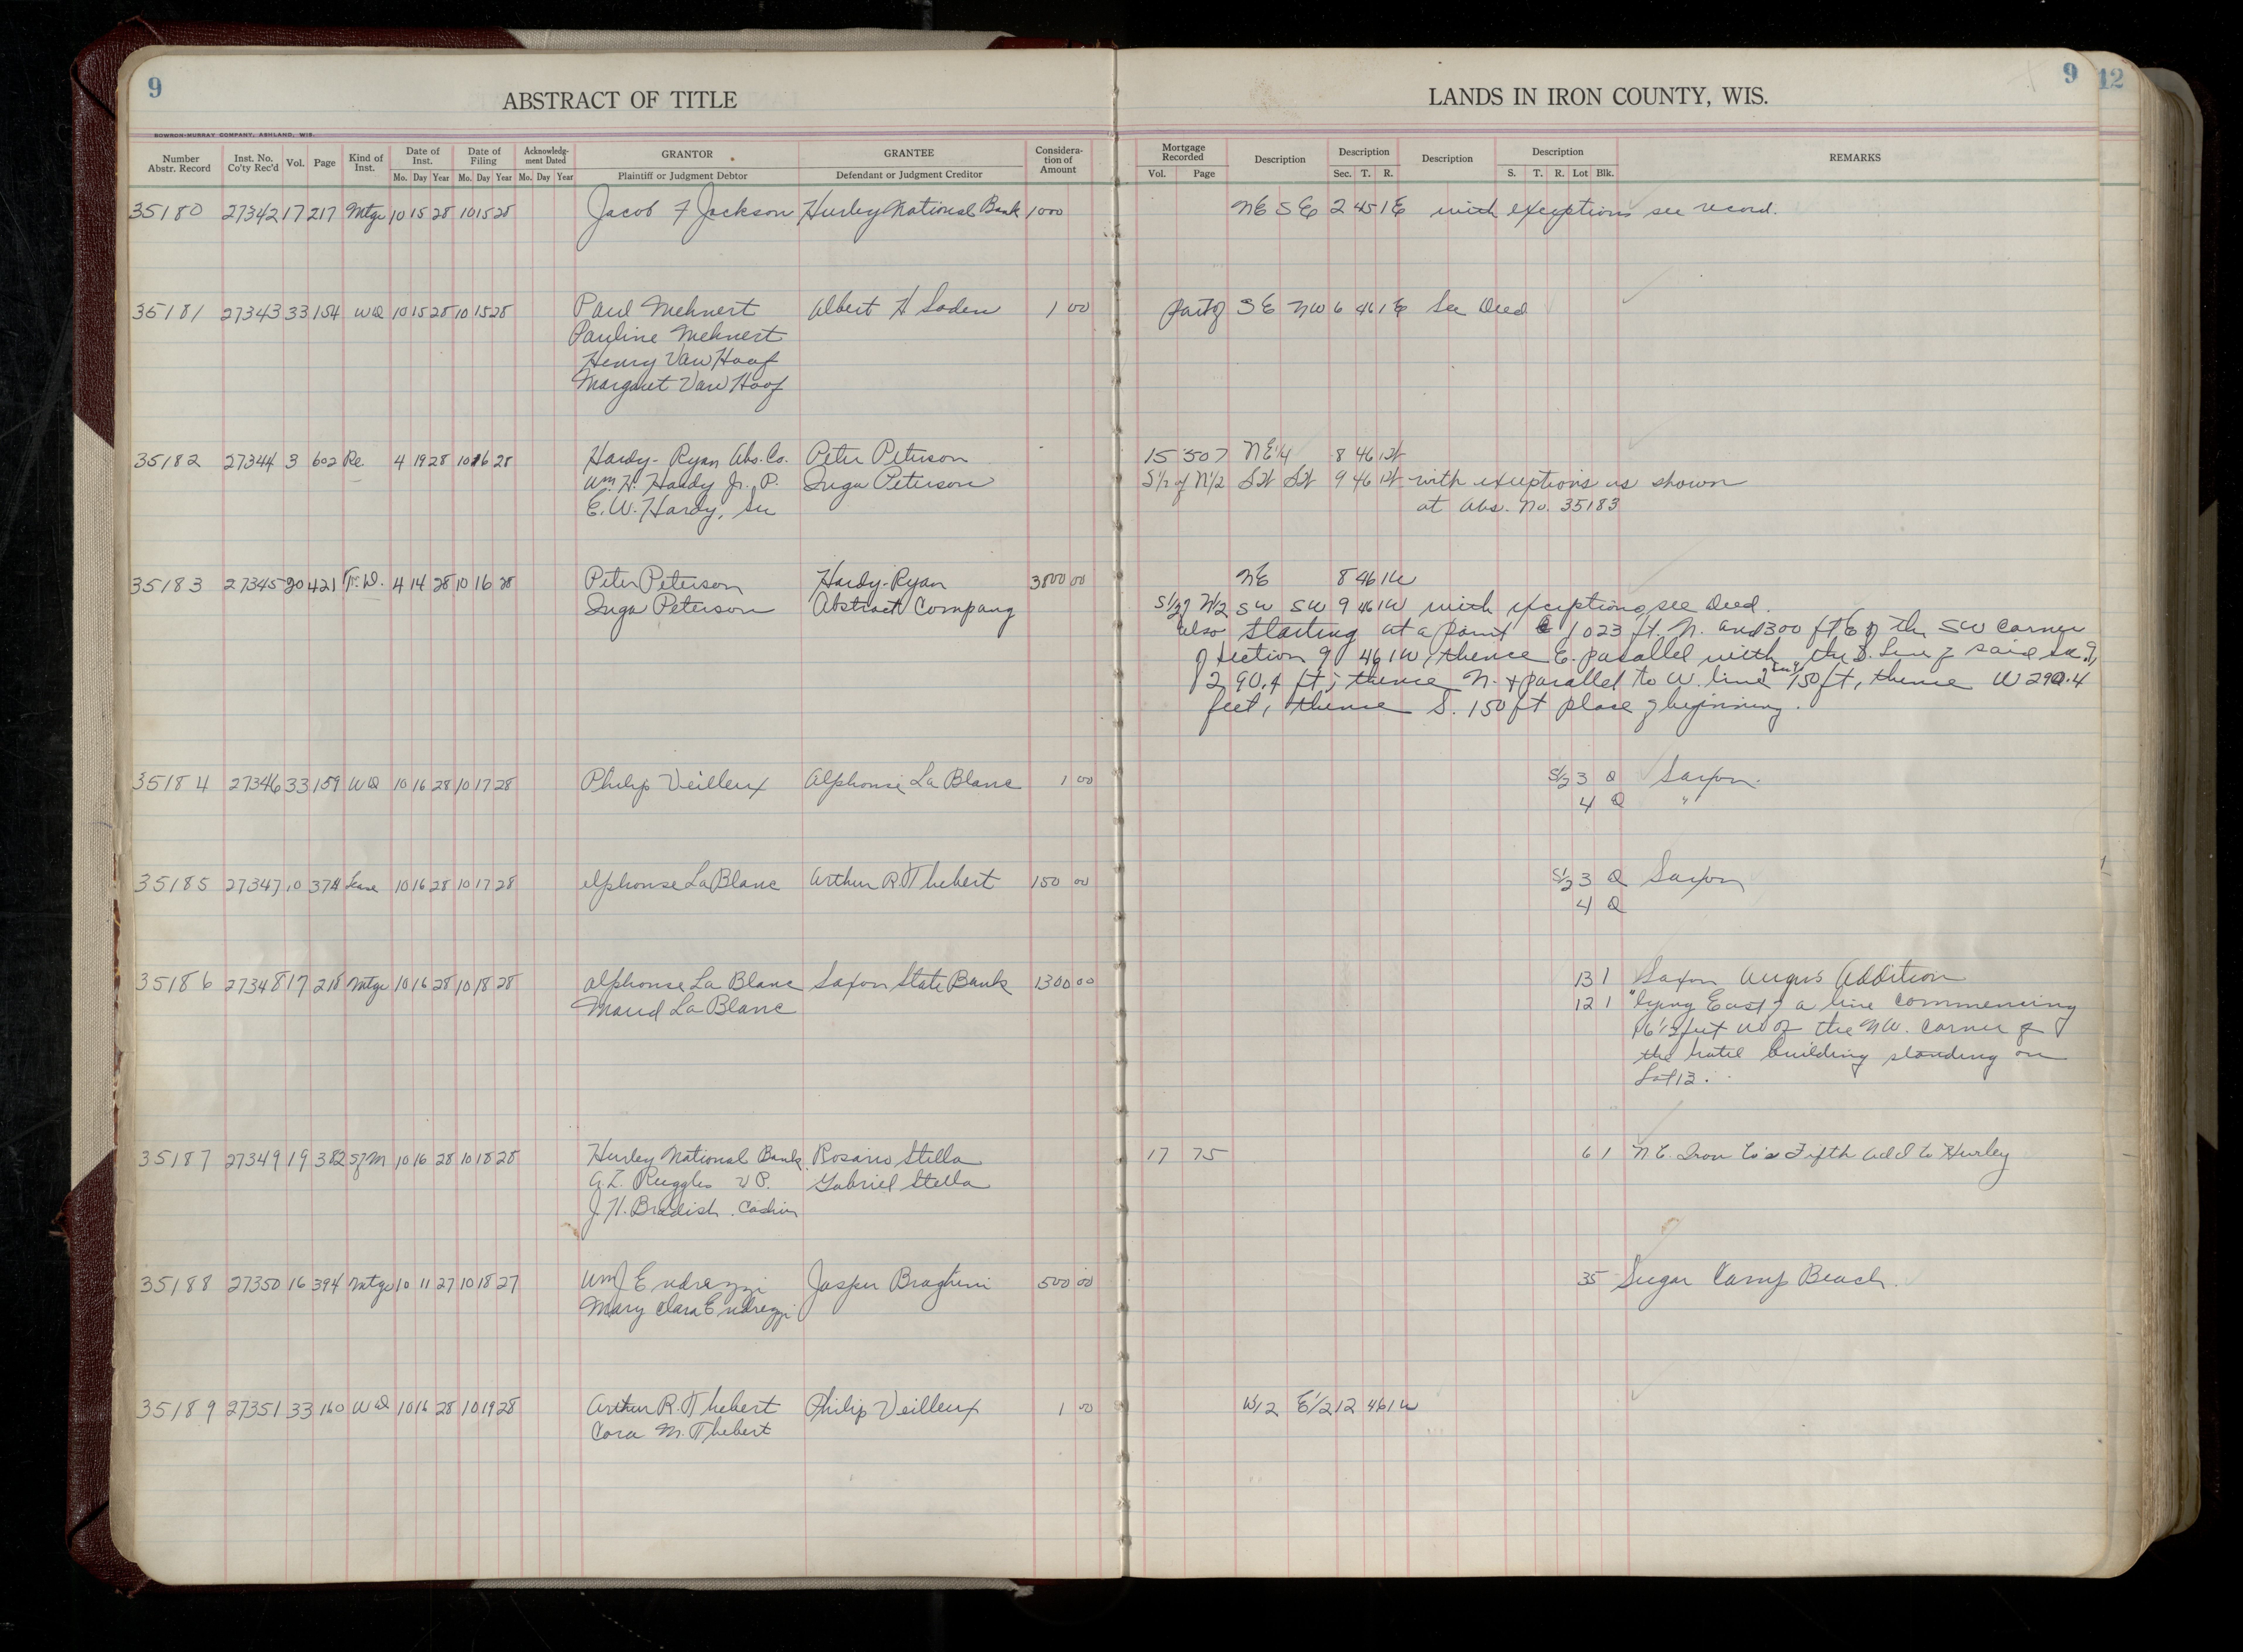 9
ABSTRACT OF TITLE
LANDS IN IRON COUNTY, WIS.
9
12
BOWRON-MURRAY COMPANY, ASHLAND, WIS.
Number Abstr. Record Inst. No. Co'ty Rec'd Vol. Page Kind of Inst. Date of Inst. Date of Filing Acknowledgment Dated GRANTOR GRANTEE Consideration of Amount Mortgage Recorded Description Description Description Description REMARKS
Mo. Day Year Mo. Day Year Mo. Day Year Plaintiff or Judgment Debtor Defendant or Judgment Creditor Vol. Page Sec. T. R. S. T. R. Lot Blk.
35180 27342 17 217 Mtge 10 15 28 10 15 28 Jacob F Jackson Hurley National Bank 1000 NE SE 2 45 1E with exceptions see record.
35181 27343 33 154 WD 10 15 28 10 15 28 Paul Mehnert Albert H Soden 1 00 Part of SE NW 6 46 1E See Deed
Pauline Mehnert
Henry Van Hoof
Margaret Van Hoof
35182 27344 3 602 Re. 4 19 28 10 16 28 Hardy-Ryan Abs. Co. Peter Peterson 15 507 NE1/4 8 46 1W
Wm. H. Hardy Jr. P. Inga Peterson S1/2 of N1/2 SW SW 9 46 1W with exceptions as shown
E. W. Hardy, Sec at Abs. No. 35183
35183 27345 20 421 T. D. 4 14 28 10 16 28 Peter Peterson Hardy-Ryan 3800 00 NE 8 46 1W
Inga Peterson Abstract Company S1/2 of N/2 SW SW 9 46 1W with exceptions, see Deed.
also starting at a point 1023 ft. N. and 300 ft E of the SW corner
of section 9 46 1W, thence E. parallel with the S. line of said sec 9,
290.4 ft; thence N. & parallel to W. line 150 ft, thence W 290.4
feet, thence S. 150 ft place of beginning.
35184 27346 33 159 WD 10 16 28 10 17 28 Philip Veilleux Alphonse La Blanc 1 00 S1/2 3 Q Saxon.
4 Q "
35185 27347 10 374 Lease 10 16 28 10 17 28 Alphonse La Blanc Arthur R. Thebert 150 00 S1/2 3 Q Saxon
4 Q
35186 27348 17 218 Mtge 10 16 28 10 18 28 Alphonse La Blanc Saxon State Bank 1300 00 13 1 Saxon Angus Addition
Maud La Blanc 12 1 "lying East of a line commencing
16 1/2 feet W of the NW. corner of
the hotel building standing on
Lot 13.
35187 27349 19 382 SfM 10 16 28 10 18 28 Hurley National Bank Rosario Stella 17 75 6 1 N.E. Iron Co's Fifth Add to Hurley
A. L. Ruggles V P. Gabriel Stella
J. H. Bradish. Cashier
35188 27350 16 394 Mtge 10 11 27 10 18 27 Wm J Endrezzi Jasper Braghini 500 00 35 Sugar Camp Beach.
Mary Clara Endrezzi
35189 27351 33 160 WD 10 16 28 10 19 28 Arthur R. Thebert Philip Veilleux 1 00 W1/2 E1/2 12 46 1W
Cora M. Thebert